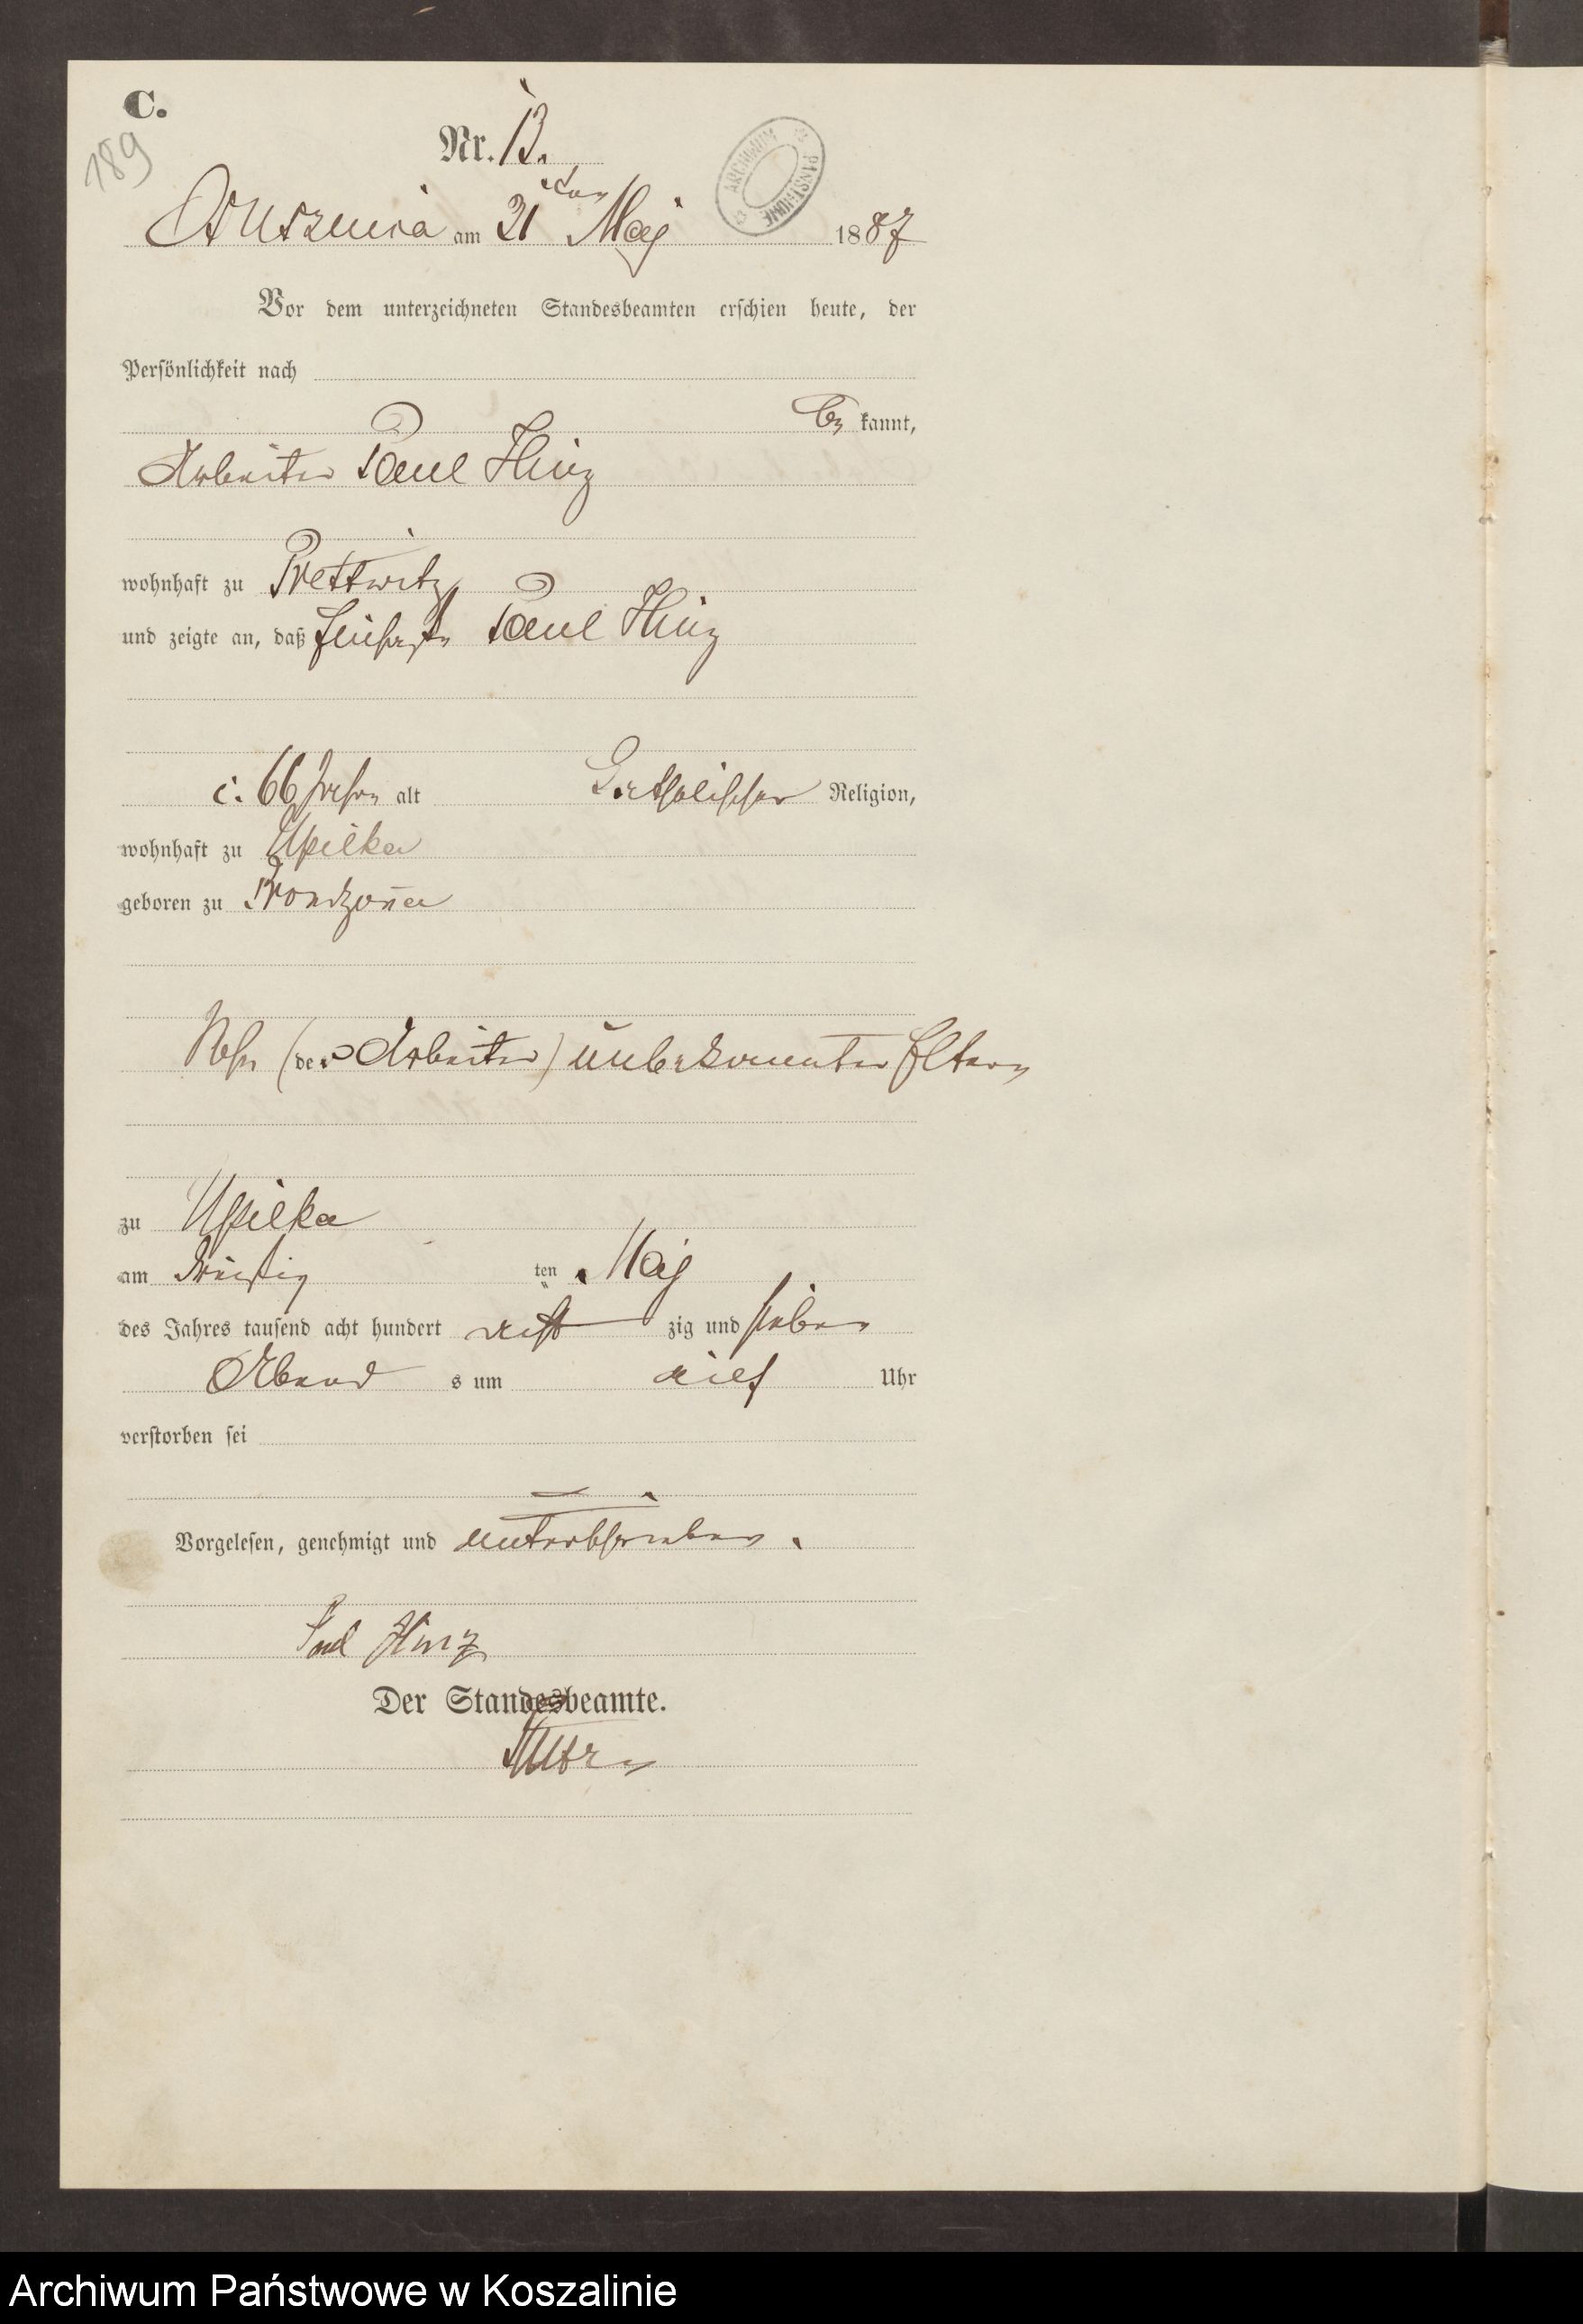 C.
189
Nr. 13.
ARCHIWUM PAŃSTWOWE
am 31ten Maj 1887
Vor dem unterzeichneten Standesbeamten erschien heute, der
Persönlichkeit nach
be kannt,
Arbeiter Paul Hinz
wohnhaft zu Prettwitz
und zeigte an, daß Paul Hinz
c. 66 Jahre alt Katholischer Religion,
wohnhaft zu Upilka
geboren zu Prondzona
Sohn (des Arbeiter) unbekannter Eltern
zu Upilka
am dreißig ten Maj
des Jahres tausend acht hundert acht zig und sieben
Abend s um elf Uhr
verstorben sei
Vorgelesen, genehmigt und unterschrieben.
Paul Hinz
Der Standesbeamte.
Archiwum Państwowe w Koszalinie